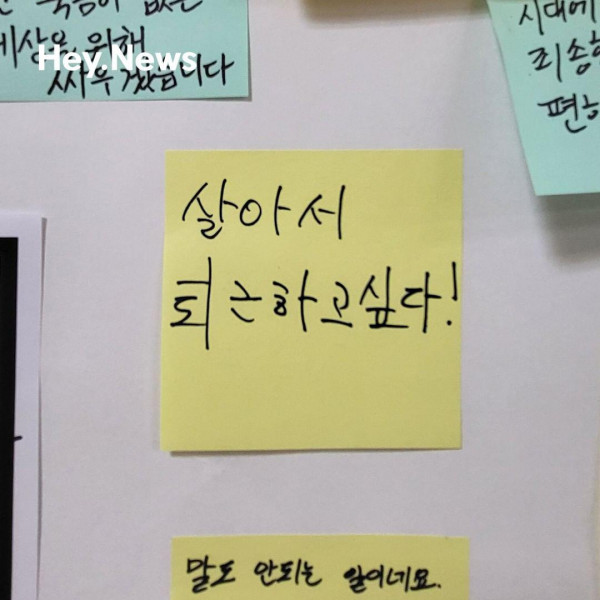 죽음이 없는
세상을 위해
싸우겠습니다
Hey.News
시대에
죄송하
편히
살아서
퇴근하고싶다!
말도 안되는 일이네요.